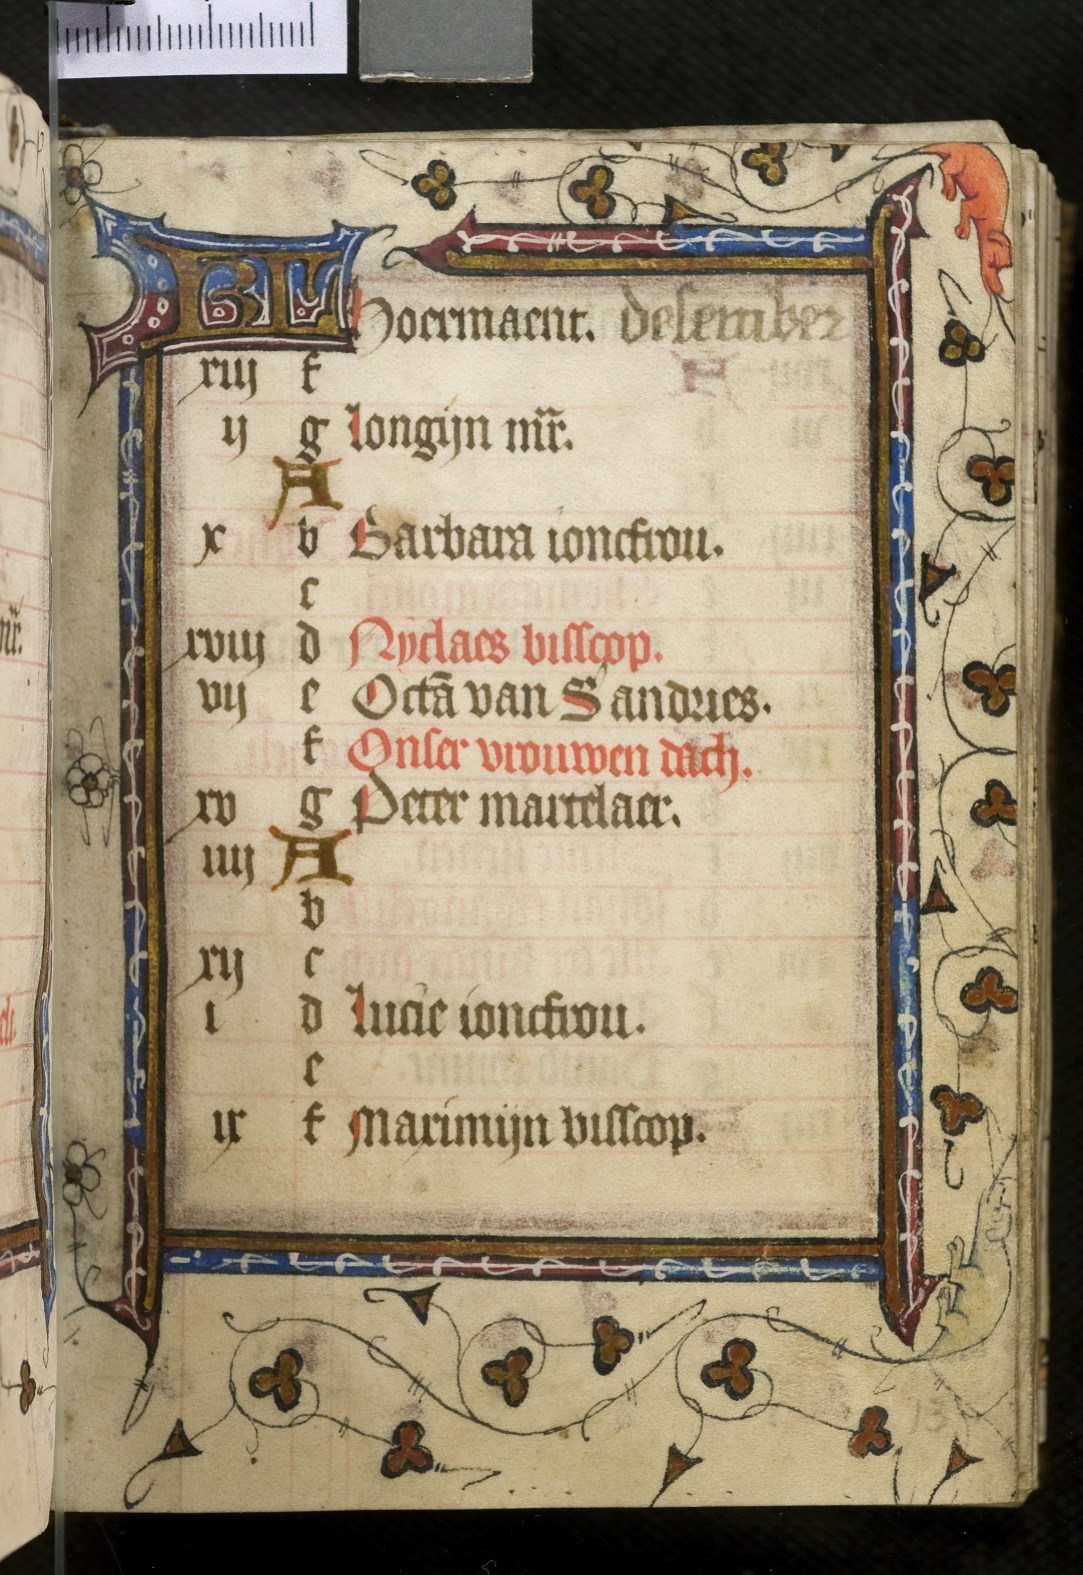 KL Hoermaent. desember
xiij f
ij g longijn mr̄.
A
x b Barbara ioncfrou.
c
xviij d Nyclaes bisscop.
vij e Octā van S' andries.
f Onser vrouwen dach.
xv g Peter martelaer.
iiij A
b
xij c
i d lucie ioncfrou.
e
ix f Maximijn bisscop.
13